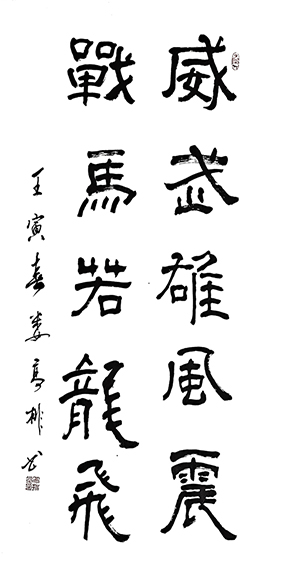 威武雄風震
戰馬若龍飛
壬寅春娄高书